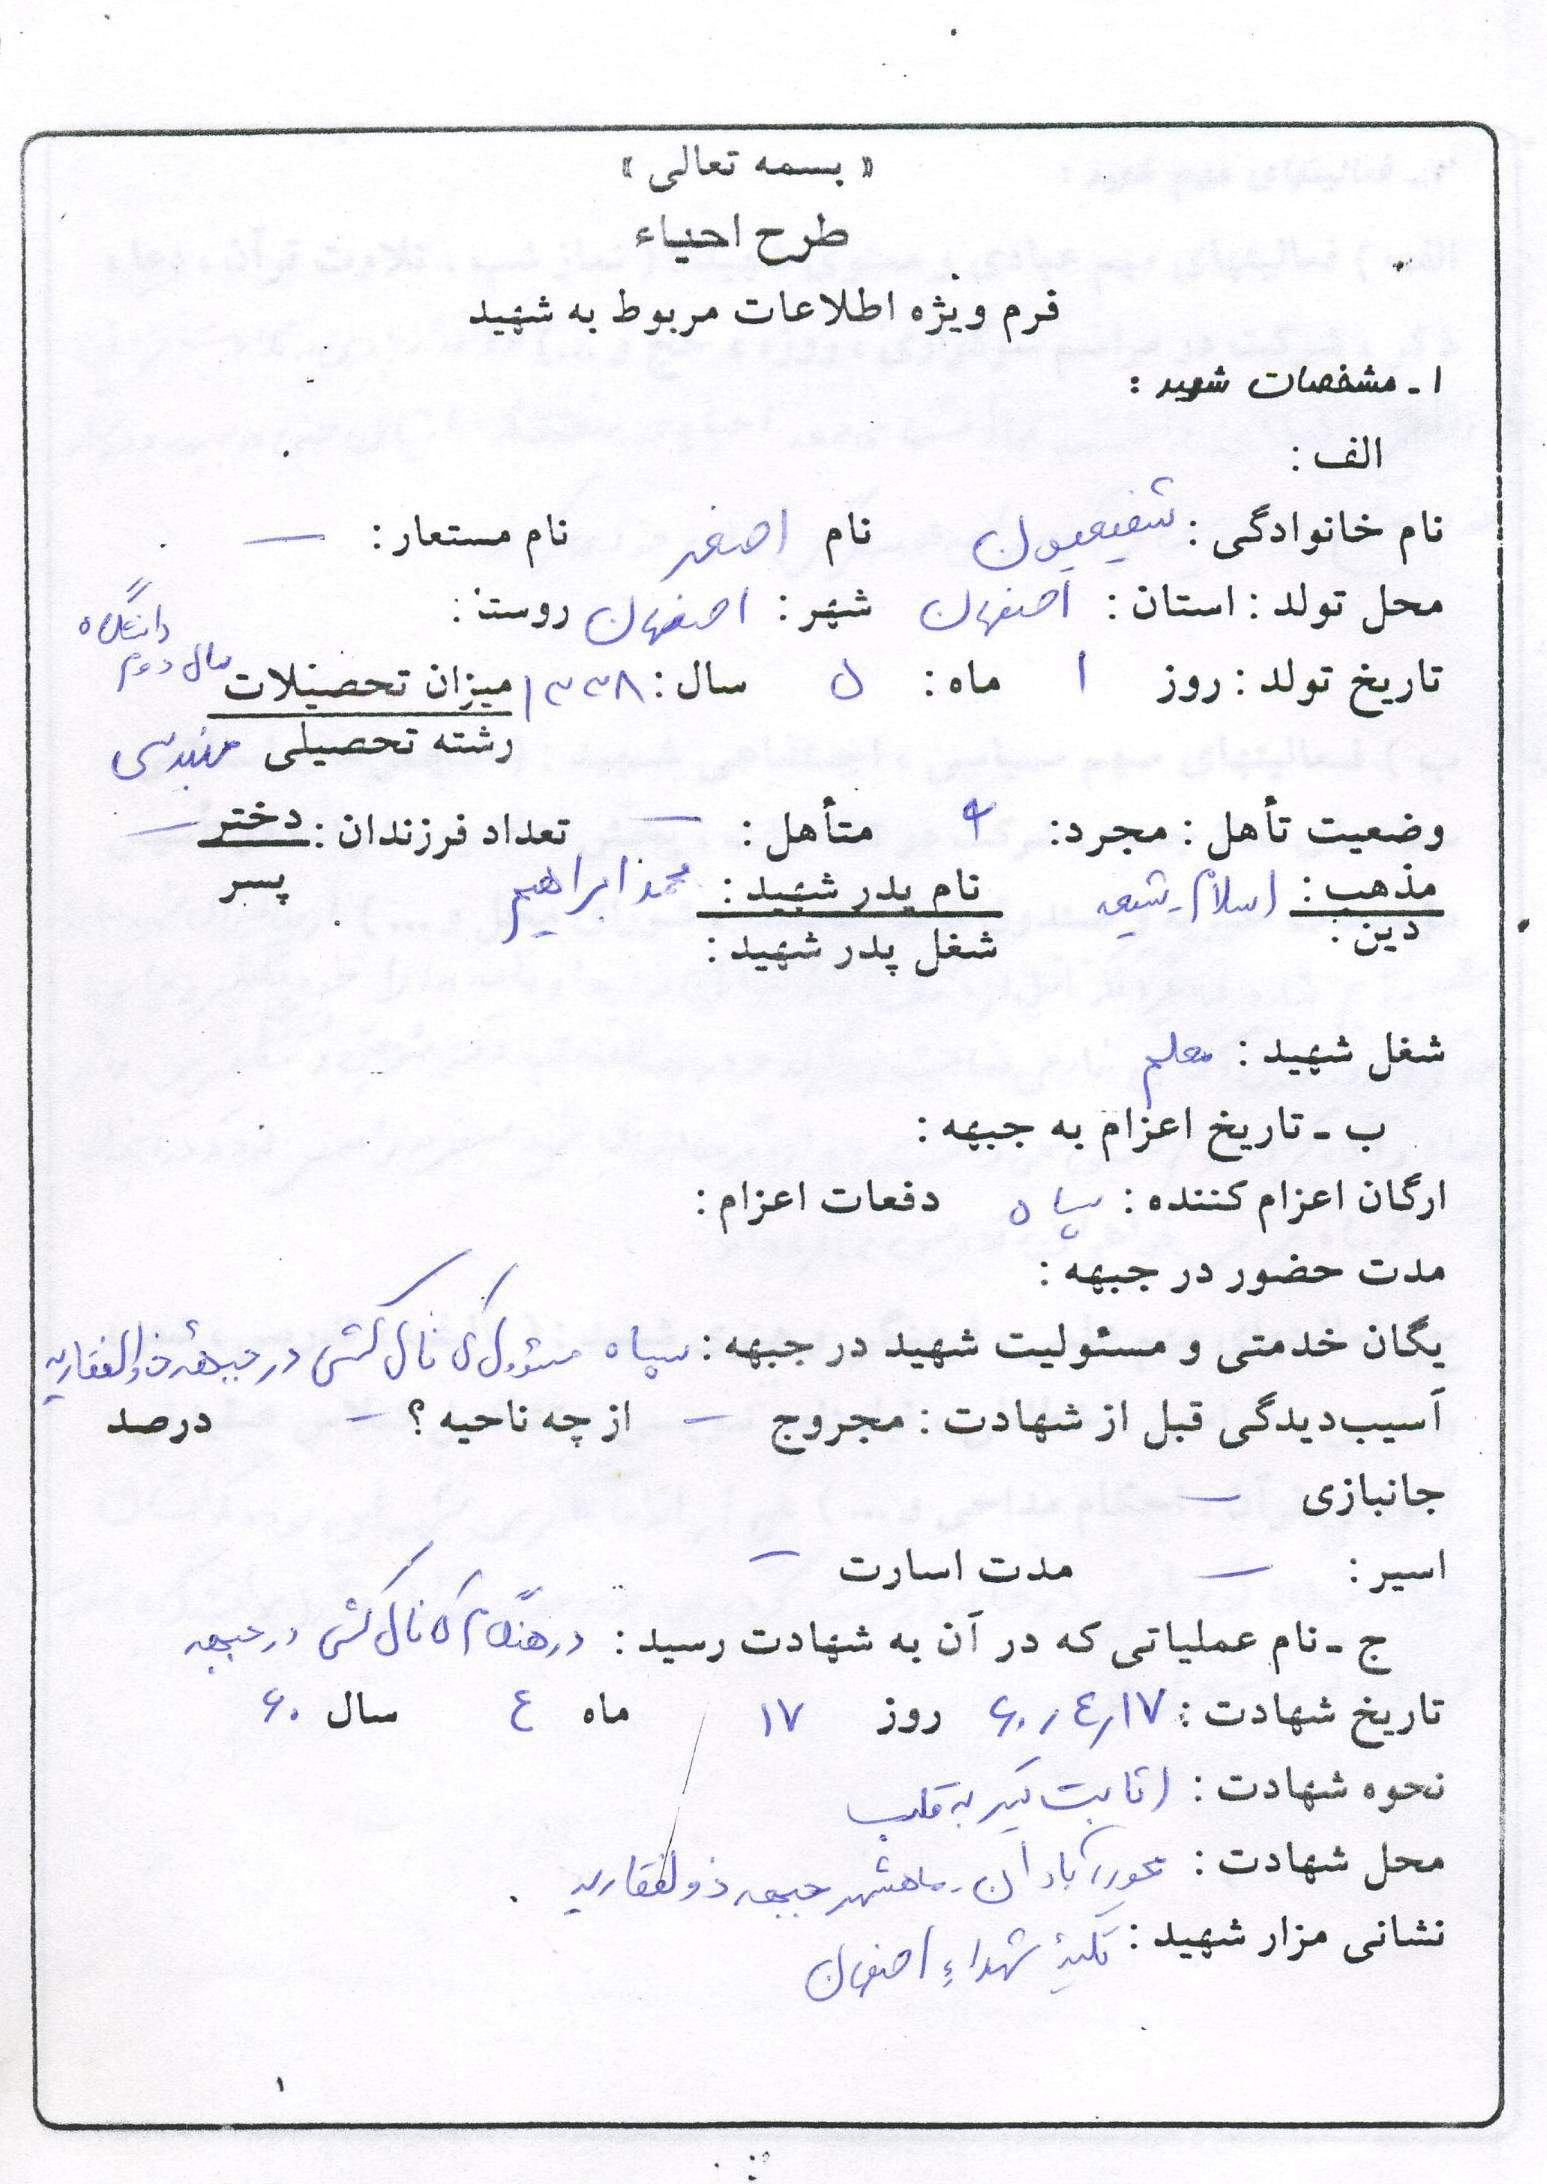 « بسمه تعالی »
طرح احیاء
فرم ویژه اطلاعات مربوط به شهید
۱ـ مشخصات شهید :
الف :
نام خانوادگی : شفیعیون نام اصغر نام مستعار : —
محل تولد : استان : اصفهان شهر : اصفهان روستا :
تاریخ تولد : روز ۱ ماه : ۵ سال : ۱۳۳۸ میزان تحصیلات سال دوم دانشگاه
رشته تحصیلی مهندسی
وضعیت تأهل : مجرد : متأهل : — تعداد فرزندان : دختر —
پسر
مذهب : اسلام ـ شیعه نام پدر شهید : محمد ابراهیم
دین : شغل پدر شهید :
شغل شهید : معلم
ب ـ تاریخ اعزام به جبهه :
ارگان اعزام کننده : سپاه دفعات اعزام :
مدت حضور در جبهه :
یگان خدمتی و مسئولیت شهید در جبهه : سپاه مسئول کانال کشی در جبهه ذوالفقاریه
آسیب‌دیدگی قبل از شهادت : مجروح — از چه ناحیه ؟ — درصد
جانبازی —
اسیر : — مدت اسارت —
ج ـ نام عملیاتی که در آن به شهادت رسید : در هنگام کانال کشی در جبهه
تاریخ شهادت : ۶۰٫۴٫۱۷ روز ۱۷ ماه ۴ سال ۶۰
نحوه شهادت : اثابت تیر به قلب
محل شهادت : محور آبادان ـ ماهشهر جبهه ذولفقاریه
نشانی مزار شهید : تکیهٔ شهداء اصفهان
۱